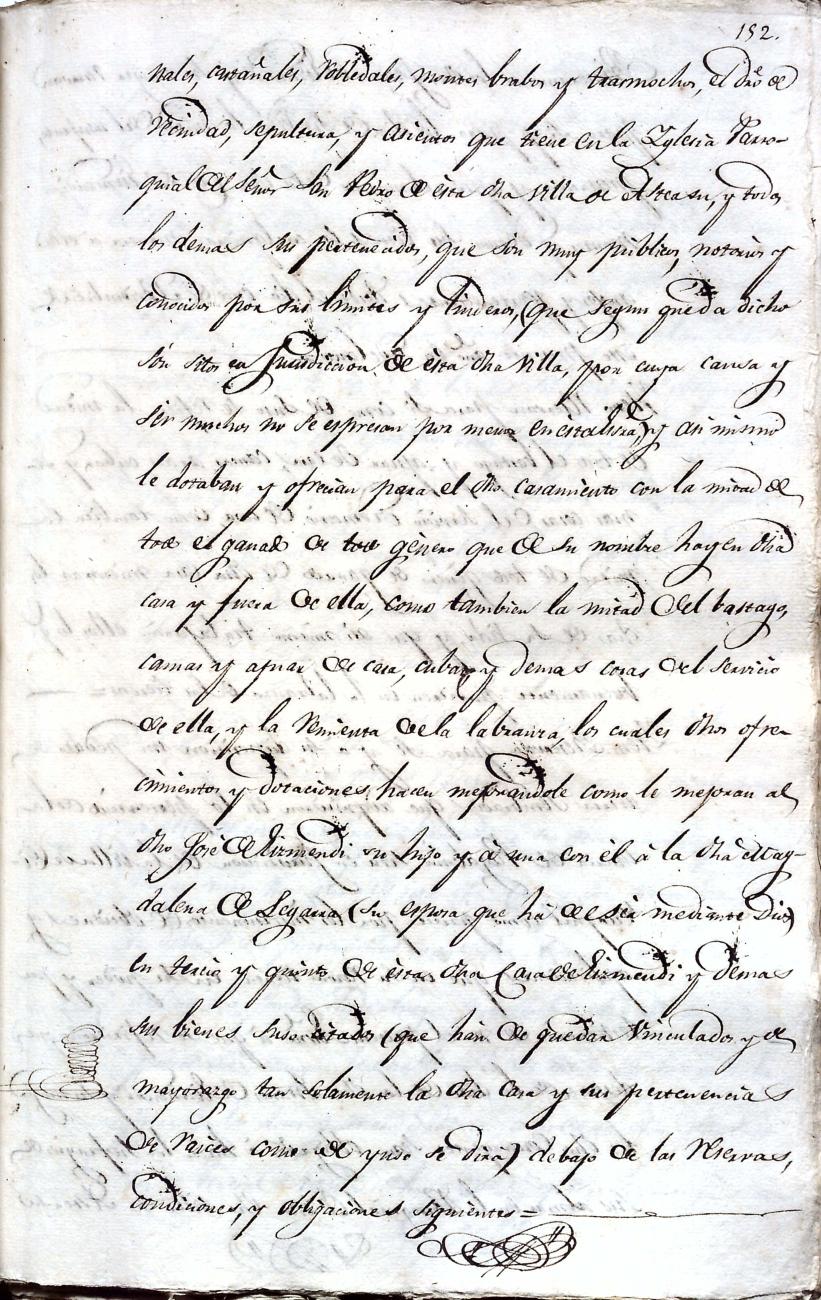 152.
nales, castañales, robledales, montes brabos y trasmochos, el dro de
Vecindad, sepultura, y asientos que tiene en la Yglesia Parro-
quial del Señor San Pedro de esta dha villa de Asteasu, y todos
los demas sus pertenecidos, que són muy publicos, notorios y
conocidos por sus limites y linderos, (que segun queda dicho
són sitos en Jurisdiccion de ésta dha villa, por cuya causa y
sér muchos no se espresan por menor en esta lista,) y asi mismo
le dotaban y ofrecian para el dho casamiento con la mitad de
todo el ganado de todo género que de su nombre hay en dha
casa y fuera de ella, como tambien la mitad del bastago,
camas y ajuar de casa, cubas, y demas cosas del servicio
de ella, y la remienta de la labranza, los cuales dhos ofre-
cimientos y dotaciones hacen mejorandole como le mejoran al
dho José de Lizmendi su hijo y á una con él á la dha Mag-
dalena de Legarra (su esposa que há de sér mediante Dios)
en tercio y quinto de ésta dha Casa de Lizmendi y demas
sus bienes suso citados (que hán de quedar vinculados y de
mayorazgo tan solamente la dha casa y sus pertenencias
de raices como de yuso se dirá) debajo de las reservas,
condiciones, y obligaciones siguientes =